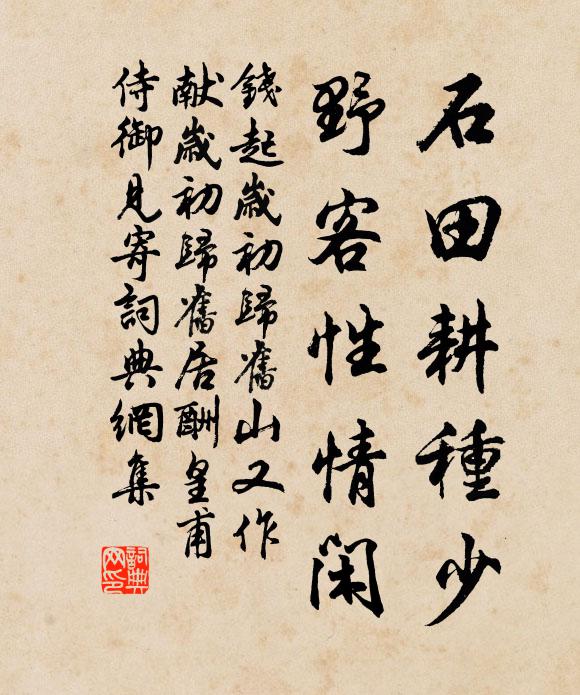 石田耕種少
野客性情閑
錢起歲初歸舊山又作
獻歲初歸舊居酬皇甫
侍御見寄詞典網集
詞典
网印